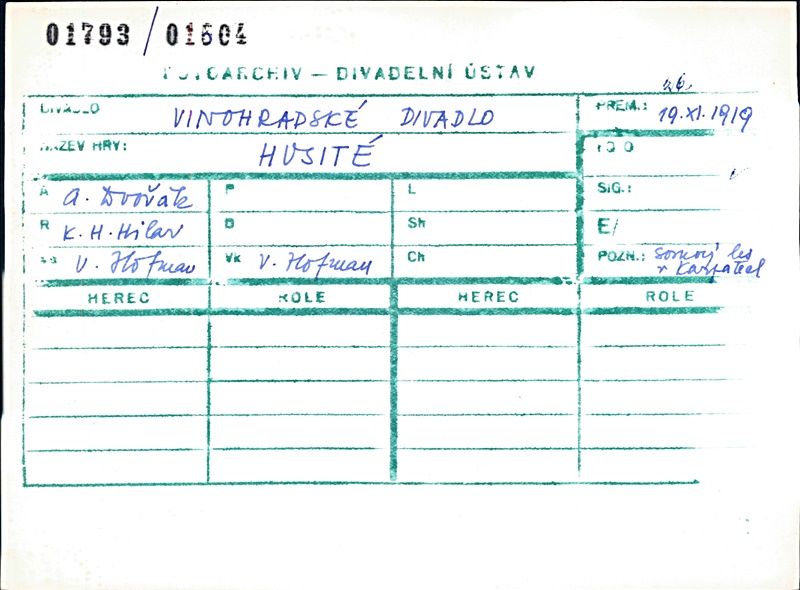 01793 / 01604
FOTOARCHIV – DIVADELNÍ ÚSTAV
26.
DIVADLO VINOHRADSKÉ DIVADLO PREM.: 19.XI.1919
NÁZEV HRY: HUSITÉ
A A. Dvořák P L SIG.:
R K. H. Hilar D Sh E/
V. Hofman Vk V. Hofman Ch POZN.: les
v Karpatech
HEREC ROLE HEREC ROLE